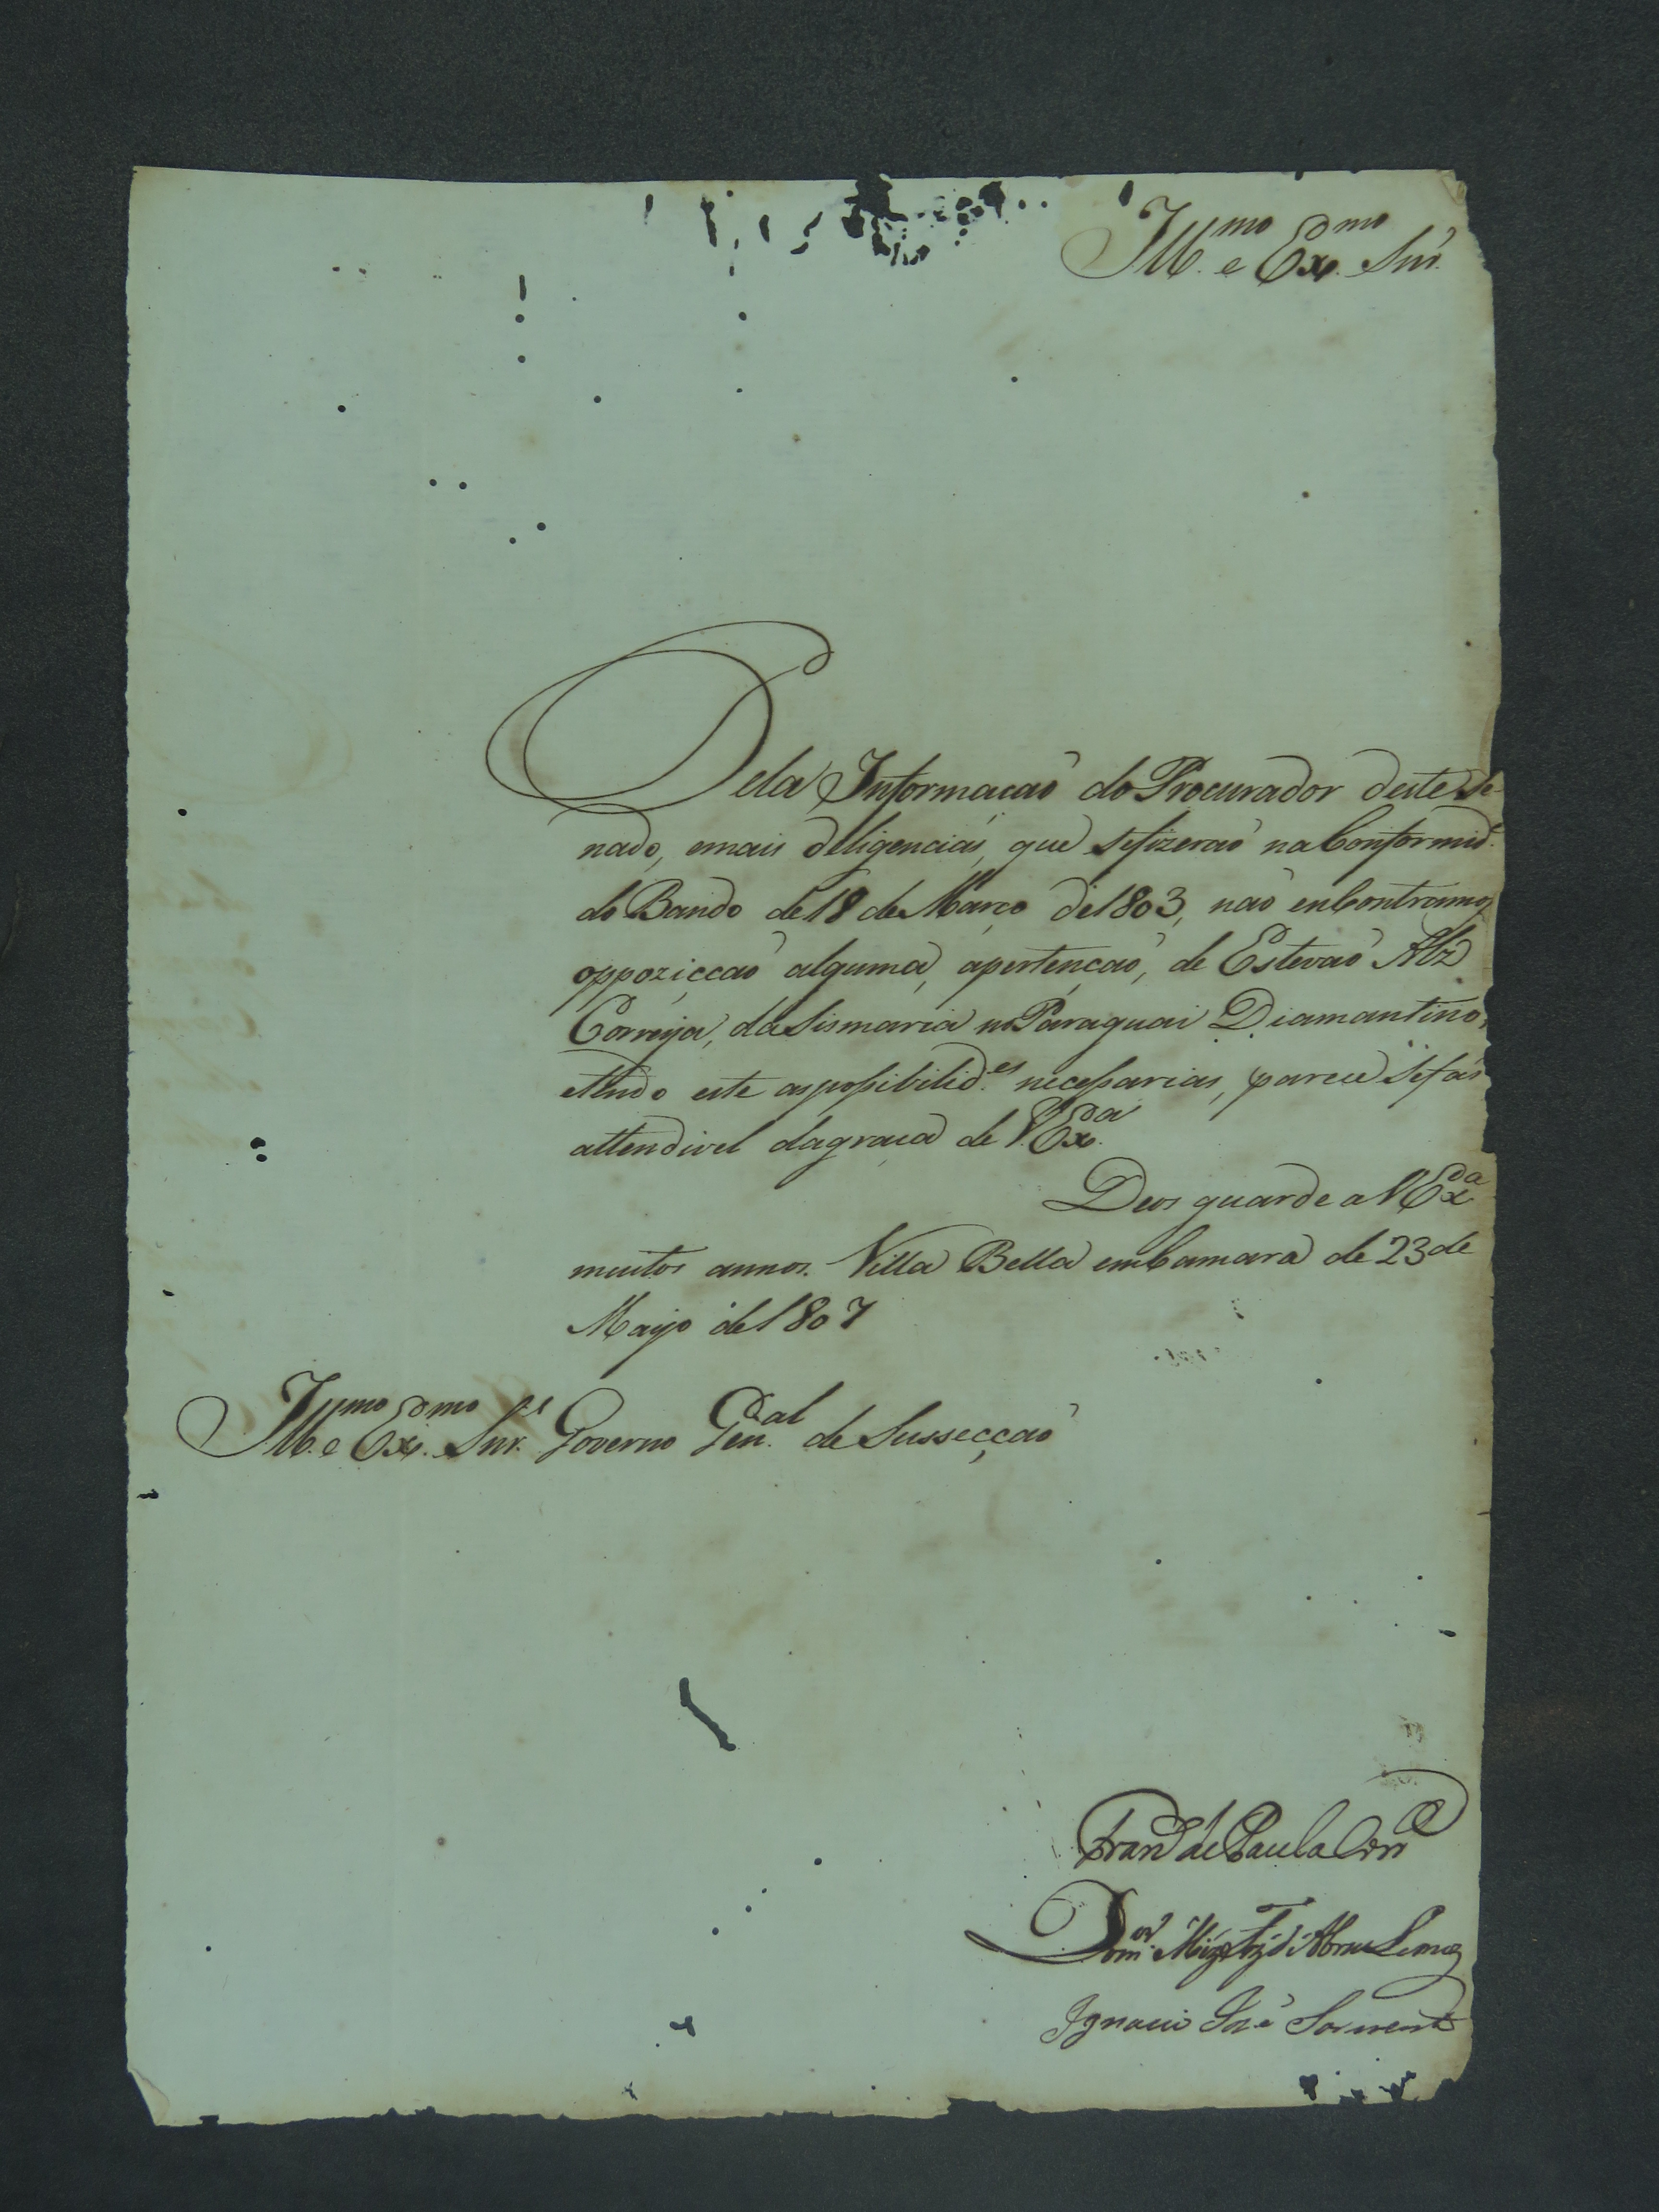 Ill.mo e Ex.mo Snr.
Pela Informacaõ do Procurador deste Se-
nado, emais deligencias, que sefizeraõ na Conformid.e
do Bando de 18 de Março de 1803, naõ enContramos
oppoziccaõ alguma, apertençaõ, de Estevaõ Alz
Correya, da Sismaria no Paraguai Diamantino,
etendo este aspossibilid.es necessarias, parece sefás
attendivel dagraça de V. Ex.a
Deos guarde a V Ex.a
muitos annos. Villa Bella emCamara de 23 de
Mayo de 1807
Ill.mo e Ex.mo Snr.es Governo Gen.al de Sussecçaõ
Fran.co de Paula
Dom.os
Ignacio Joze